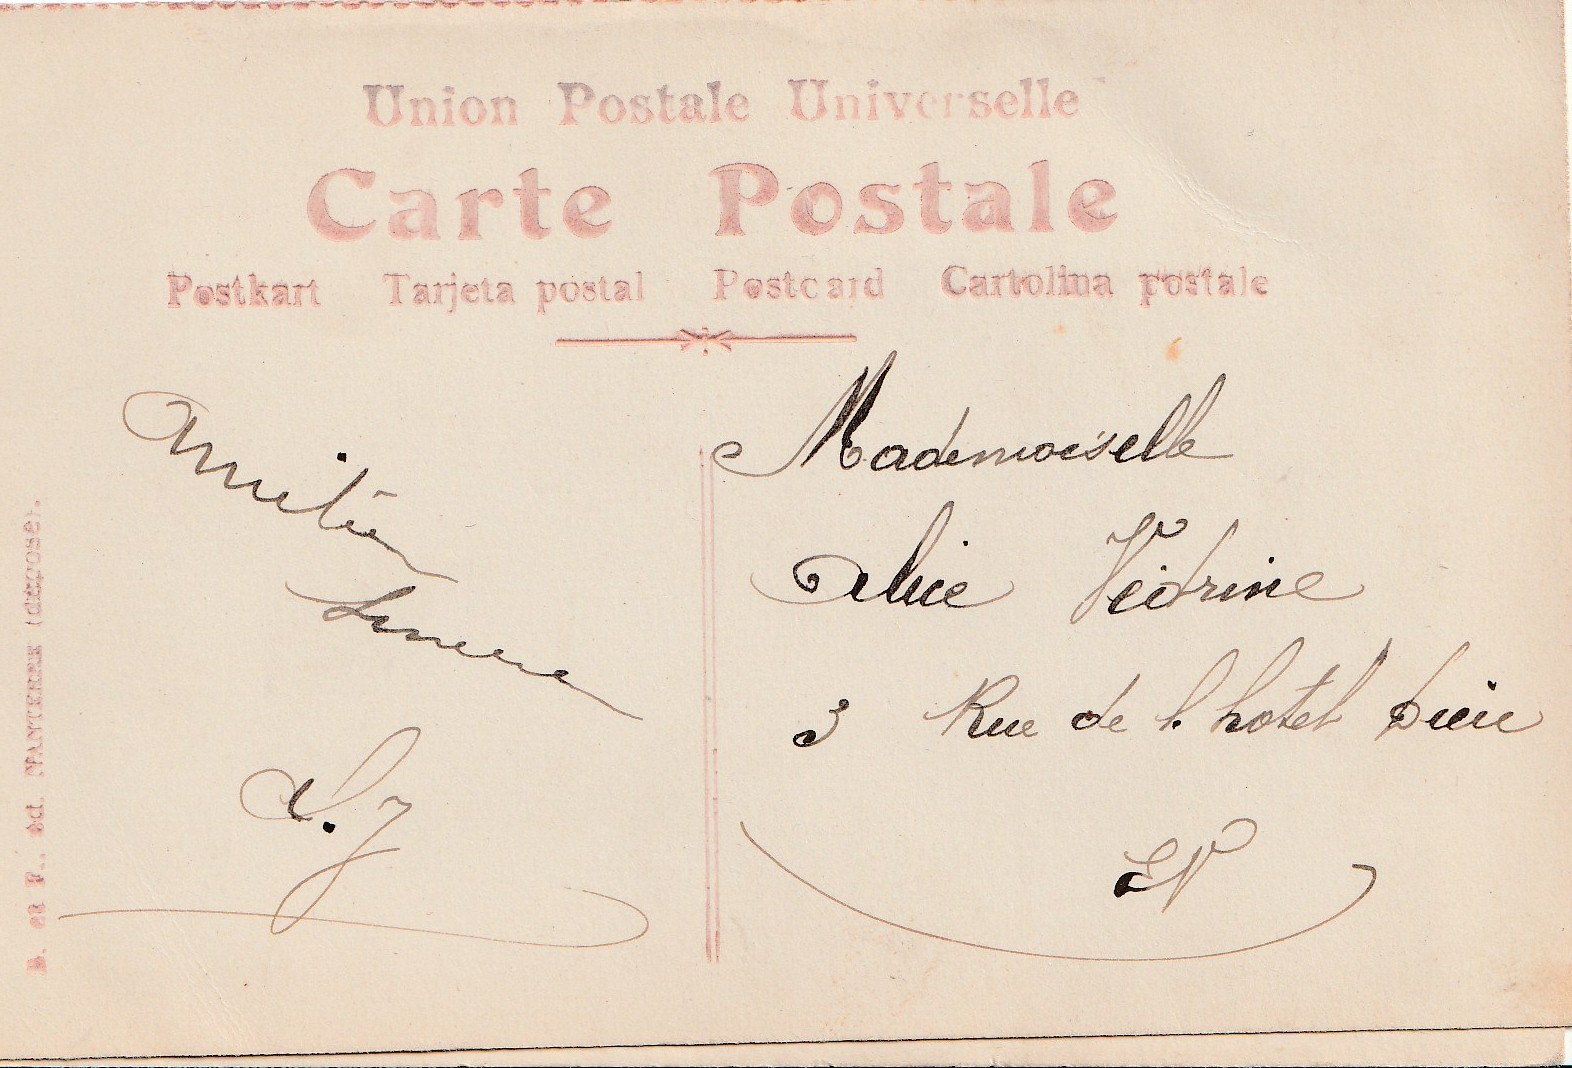 Union Postale Universelle
Carte Postale
Postkart Tarjeta postal Postcard Cartolina postale
Amitié
Sincère
Mademoiselle
Alice Védrine
3 Rue de l'hotel Dieu
EV
B. et F., éd. NANTERRE (déposé).